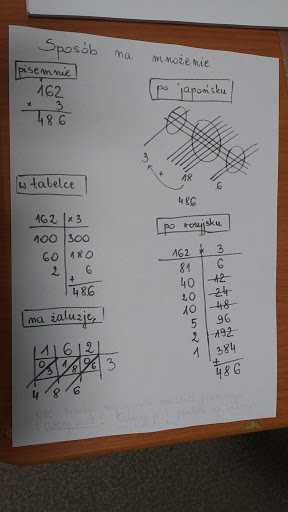 Sposób na mnożenie
pisemnie
162
× 3
486
po japońsku
3 + 18 6
486
w tabelce
162 × 3
100 300
60 180
2 6
+
486
po rosyjsku
162 × 3
81 6
40 12
20 24
10 48
5 96
2 192
1 384
+
486
na żaluzję
1 6 2
0 3 1 8 0 6 3
4 8 6